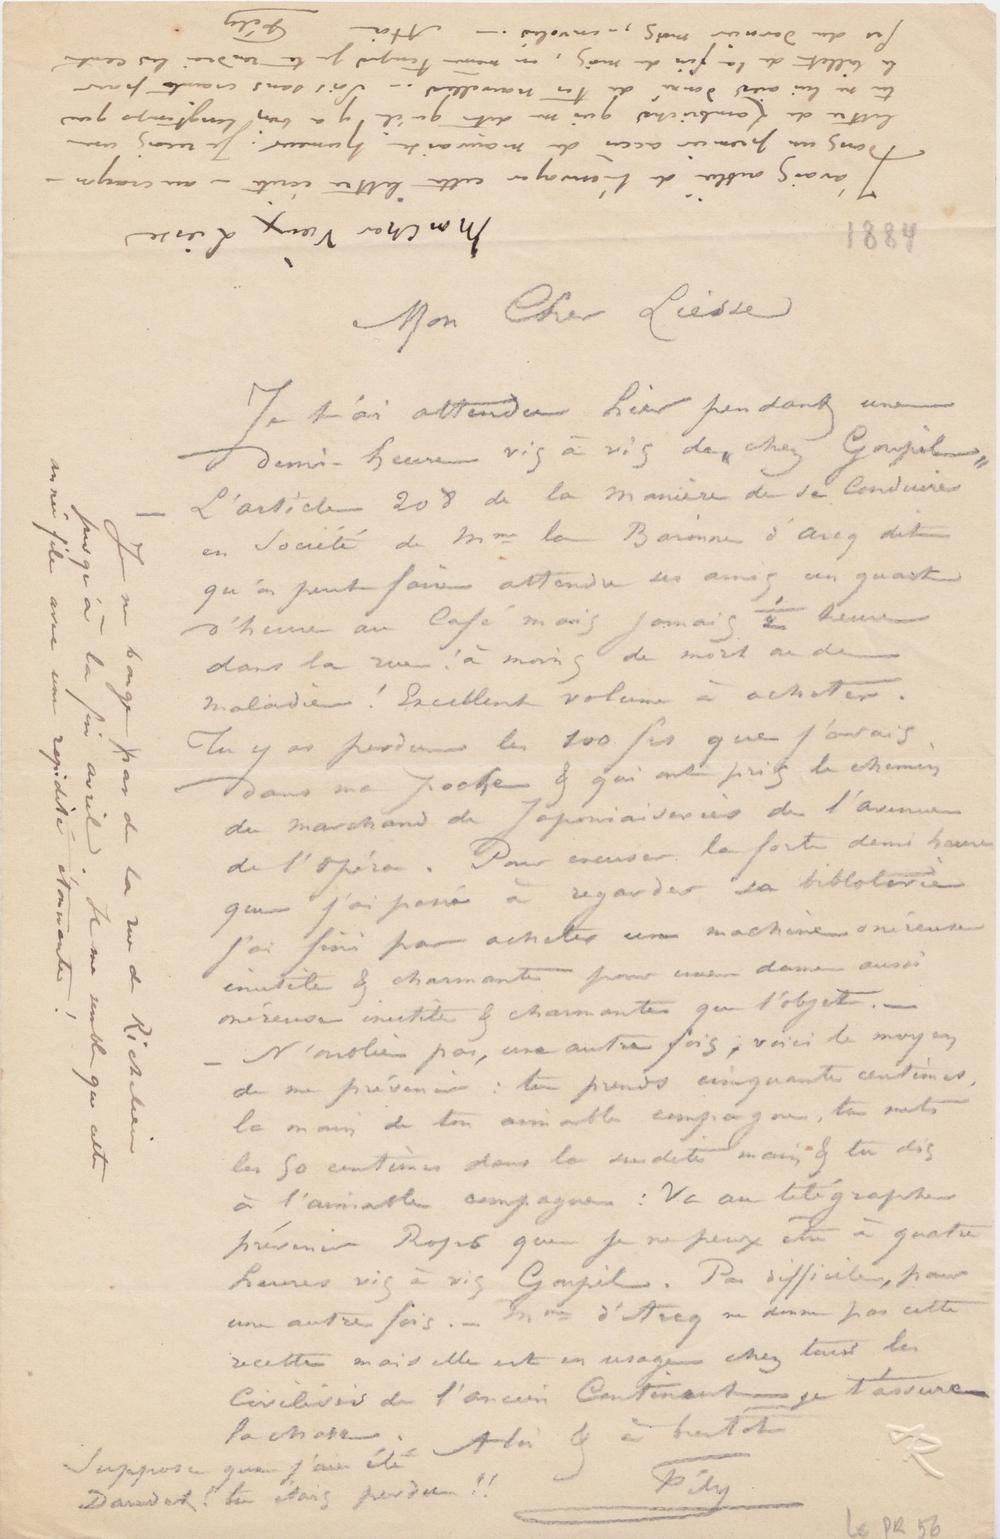 1884
Mon Cher Liesse
Je t'ai attendu hier pendant une
demi-heure vis à vis de "chez Goupil"
L'article 208 de la manière de se Conduire
en Société de Mme la Baronne d'Arcq dit
qu'on peut faire attendre ses amis un quart
d'heure au Café mais jamais ½ heure
dans la rue ! à moins de mort ou de
maladie ! Excellent volume à acheter.
Tu y as perdu les 100 frs que j'avais
dans ma poche & qui ont pris le chemin
du marchand de Japoniaiseries de l'avenue
de l'Opéra. Pour excuser la forte demi heure
que j'ai passée à regarder sa bibloterie
j'ai fini par acheter une machine onéreuse
inutile & charmante pour une dame aussi
onéreuse inutile & charmante que l'objet. —
— N'oublie pas, une autre fois ; voici le moyen
de me prévenir : tu prends cinquante centimes,
la main de ton aimable compagne, tu mets
les 50 centimes dans la susdite main & tu dis
à l'aimable compagne : Va au télégraphe
prévenir Rops que je ne peux être à quatre
heures vis à vis Goupil. Pas difficile, pour
une autre fois. — Mme d'Arcq ne donne pas cette
recette mais elle est en usage chez tous les
Civilisés de l'ancien Continent je t'assure
la chose.
A toi & à bientôt
Fély
Suppose que j'aie été
Daredart ! tu étais perdu !!
— Je ne bouge pas de la rue de Richelieu
jusqu'à la fin avril. Je me semble que cette
année file avec une rapidité étonnante !
Mon Cher Vieux Liesse
J'avais oublié de t'envoyer cette lettre écrite — au crayon —
dans un premier accès de mauvaise humeur ; Je reçois une
lettre de qui me dit qu'il y a bien longtemps que
tu ne lui aies donné de tes nouvelles — Sois sans crainte pour
le billet de la fin du mois, en même temps je te rendrai les cent
frs du dernier mois, — envolés. — A toi
Fély
Le PR 56